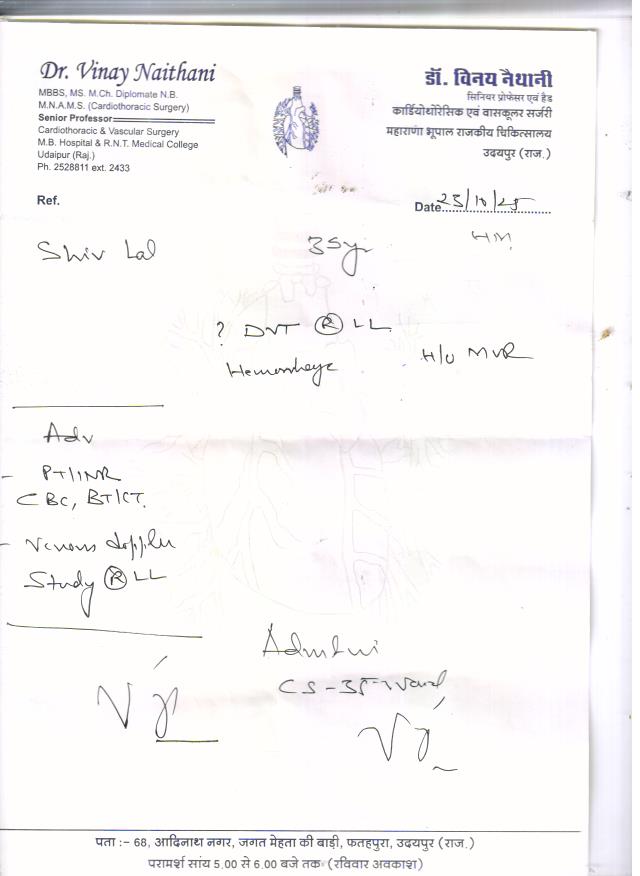 Dr. Vinay Naithani
MBBS, MS. M.Ch. Diplomate N.B.
M.N.A.M.S. (Cardiothoracic Surgery)
Senior Professor
Cardiothoracic & Vascular Surgery
M.B. Hospital & R.N.T. Medical College
Udaipur (Raj.)
Ph. 2528811 ext. 2433
डॉ. विनय नैथानी
सिनियर प्रोफेसर एवं हैड
कार्डियोथोरेसिक एवं वासकूलर सर्जरी
महाराणा भूपाल राजकीय चिकित्सालय
उदयपुर (राज.)
Ref.
Date 25/10/25
Shiv Lal 35y
HM
? DVT (R) LL
Hemorrhage H/O MVR
Adv
- PT/INR
CBC, BT/CT.
- Venous doppler
Study (R) LL
Admit in
CS-35-ward
पता :- 68, आदिनाथ नगर, जगत मेहता की बाड़ी, फतहपुरा, उदयपुर (राज.)
परामर्श सांय 5.00 से 6.00 बजे तक (रविवार अवकाश)